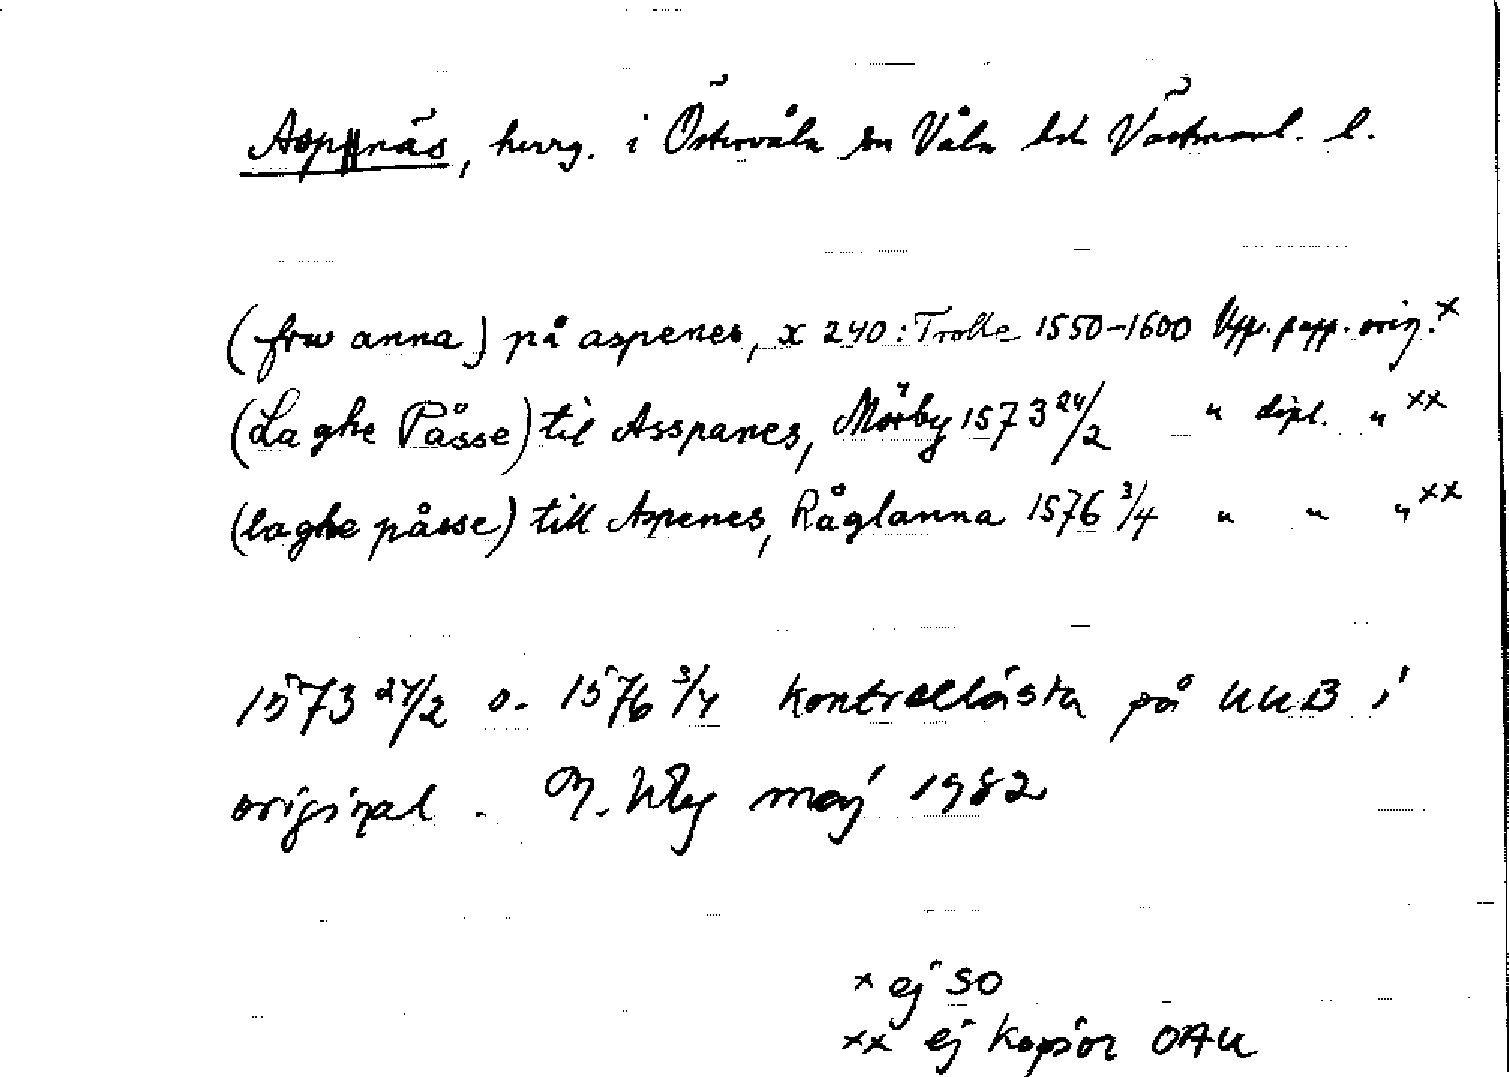 Aspnäs, herrg. i Östervåla sn Våla hd Västmanl. l.
(frw anna) på aspenes, x 240: Trolle 1550-1600 Upps. papp. orig. x
(Laghe Påsse) til Asspanes, Mörby 1573 24/2 " dipl. " xx
(laghe påsse) till Aspenes, Råglanna 1576 3/4 " " " xx
1573 24/2 o. 1576 3/4 kontrollästa på UUB i
original. maj 1982
x ej SO
xx ej kopior OAU